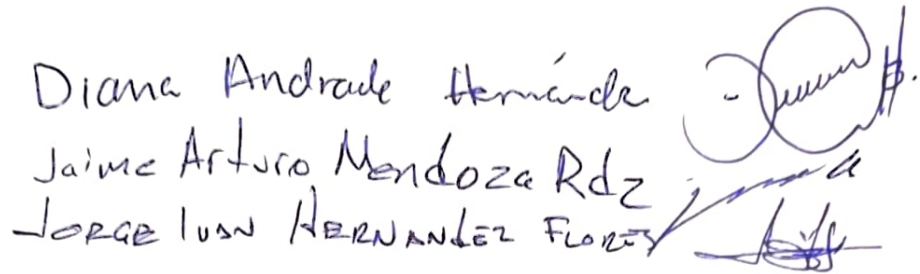 Diana Andrade Hernández
Jaime Arturo Mendoza Rdz
JORGE IVAN HERNANDEZ FLORES